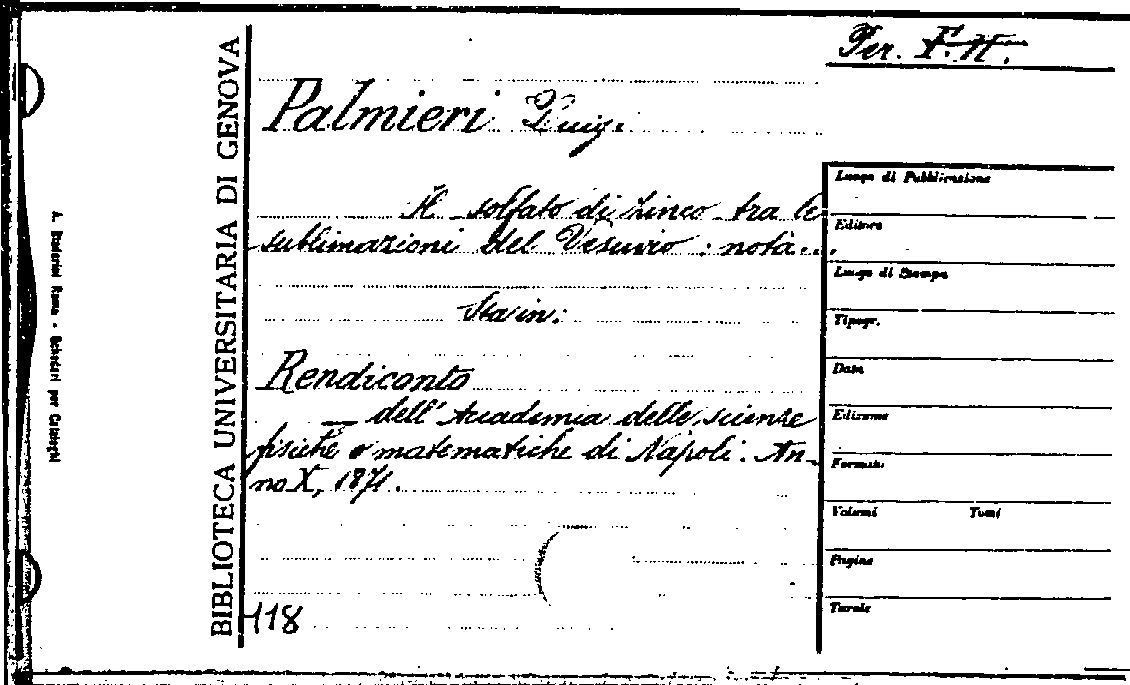 Per. F.II.
Palmieri Luigi
Il solfato di zinco tra le
sublimazioni del Vesuvio : nota...,
Sta in:
Rendiconto
— dell'Accademia delle scienze
fisiche e matematiche di Napoli. An-
no X, 1871.
118
BIBLIOTECA UNIVERSITARIA DI GENOVA
Luogo di Pubblicazione
Editore
Luogo di Stampa
Tipogr.
Data
Edizione
Formato
Volumi Tomi
Pagine
Tavole
Roma - Schedari per Cataloghi